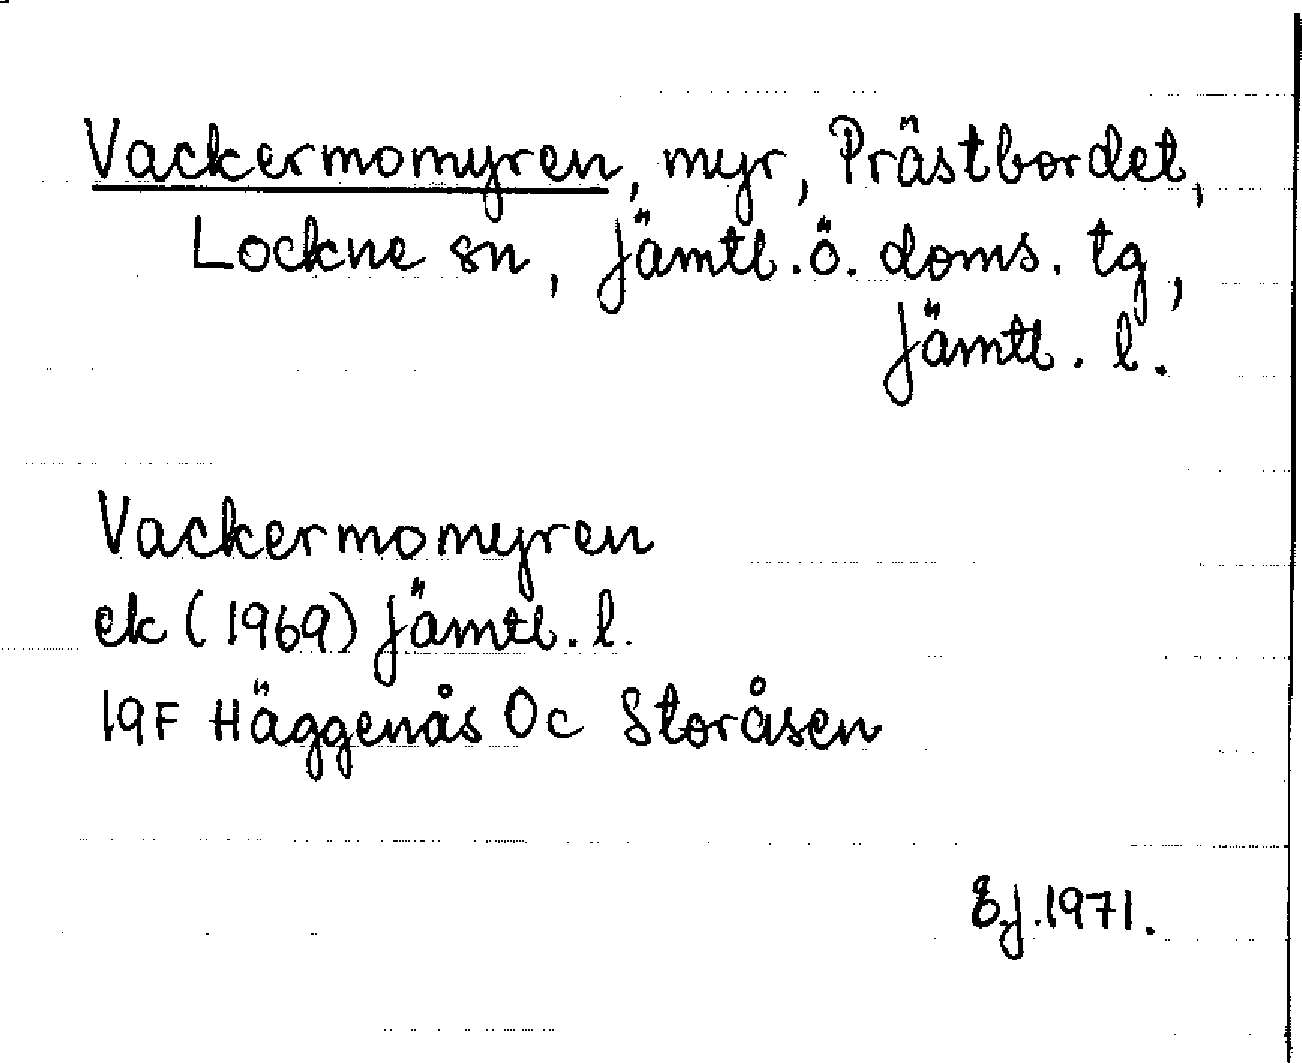 Vackermomyren, myr, Prästbordet,
Lockne sn, Jämtl. ö. doms. tg,
Jämtl. l.
Vackermomyren
ek (1969) Jämtl. l.
19F Häggenås 0c Storåsen
EJ. 1971.